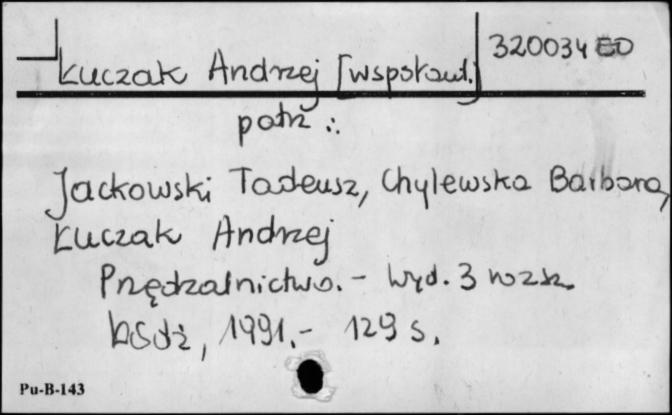 320034
Łuczak Andrzej [współaut.]
patrz :
Jackowski Tadeusz, Chylewska Barbara,
Łuczak Andrzej
Przędzalnictwo. - Wyd. 3 rozsz.
Łódź, 1991. - 129 s.
Pu-B-143